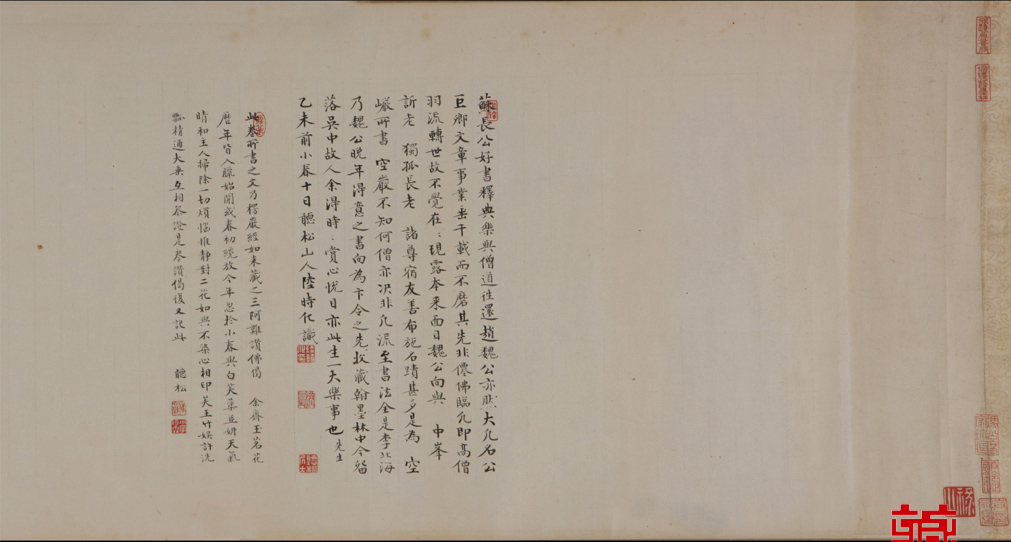 蘇長公好書釋典樂與僧道往還趙魏公亦然大凡名公
巨卿文章事業垂千載而不磨其先非僊佛臨凡即高僧
羽流轉世故不覺在〻現露本來面目魏公向與 中峯
訢老 獨孤長老 諸尊宿友善布施石蹟甚多是為 空
巖所書 空巖不知何僧亦决非凡流至書法全是李北海
乃魏公晚年得意之書向為卞令之先生收藏翰墨林中今留
落吳中故人余得時〻賞心悦目亦此生一大樂事也
乙未前小春十日聽松山人陸時化識
此卷所書之文乃楞嚴經如來藏之三阿難讚佛偈 余齋玉茗花
歷年皆入臘始開或春初纔放今年忽於小春與白芙蕖並妍天氣
晴和主人掃除一切煩惱惟靜對二花如與不染心相印美王竹嫨許沈
瓢精通大乘互相參證是參讚偈後又記此 聽松